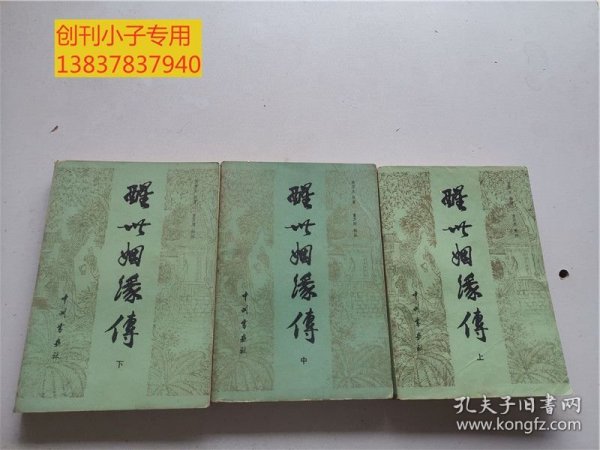 创刊小子专用
13837837940
醒世姻缘傳
中州書画社
下
醒世姻缘傳
中州書画社
中
醒世姻缘傳
中州書画社
上
孔夫子旧书网
www.kongfz.com